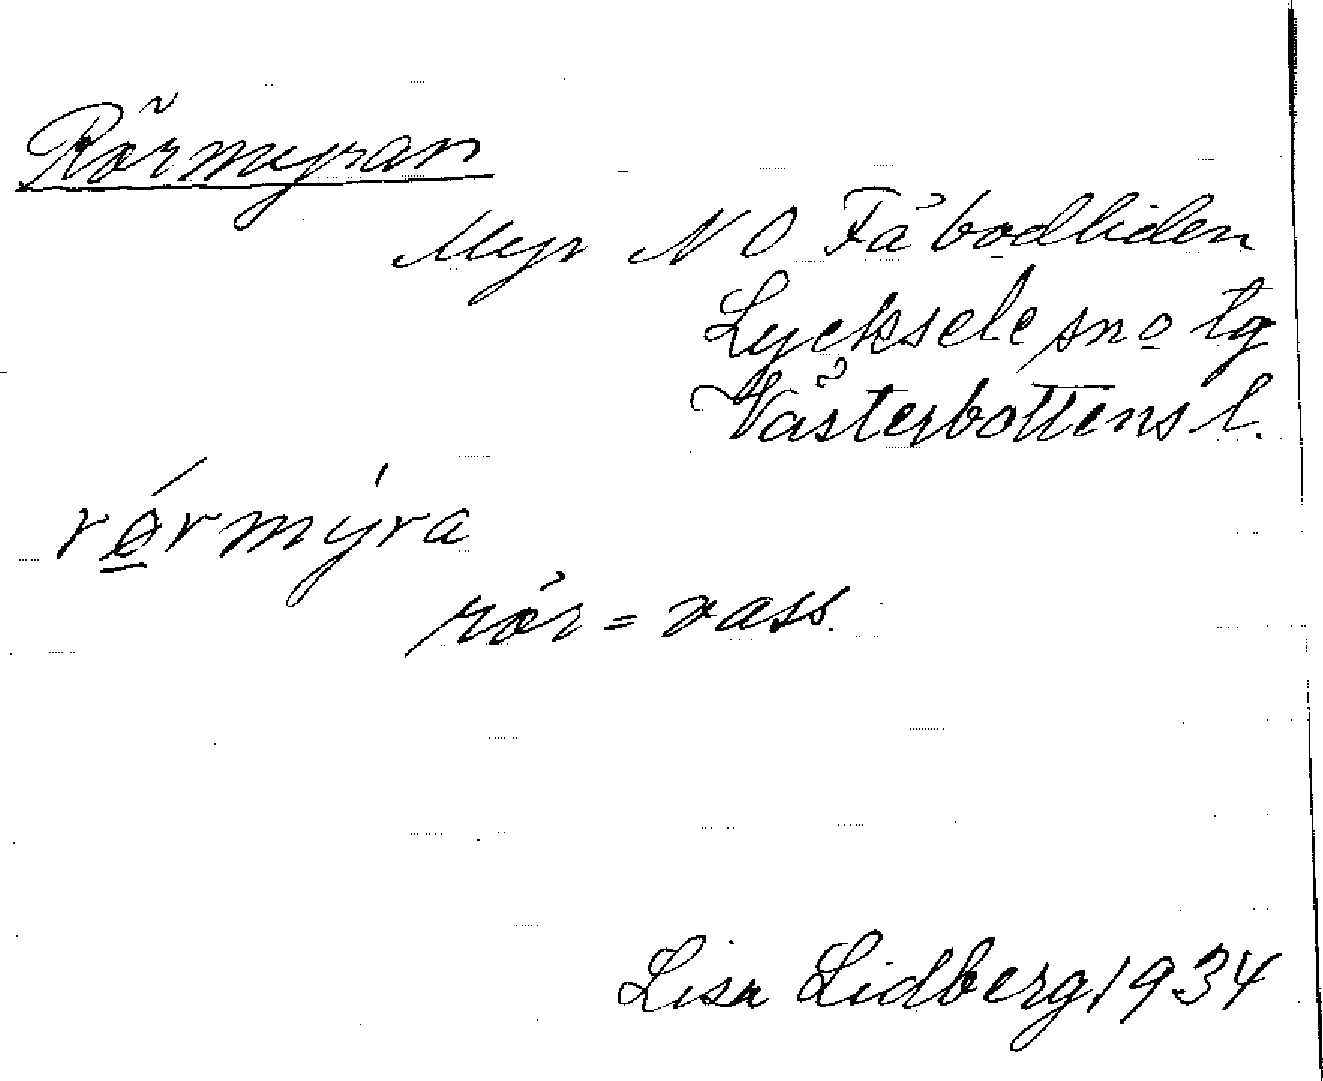 Rörmyran
Myr NO Fäbodliden
Lycksele sn o tg
Västerbottens l.
rǿrmýra
rör = vass.
Lisa Lidberg 1934